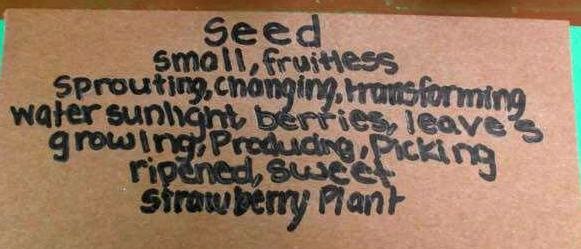 Seed
small, fruitless
Sprouting, changing, transforming
water sunlight, berries, leaves
growing, Producing, Picking
ripened, sweet
Strawberry Plant